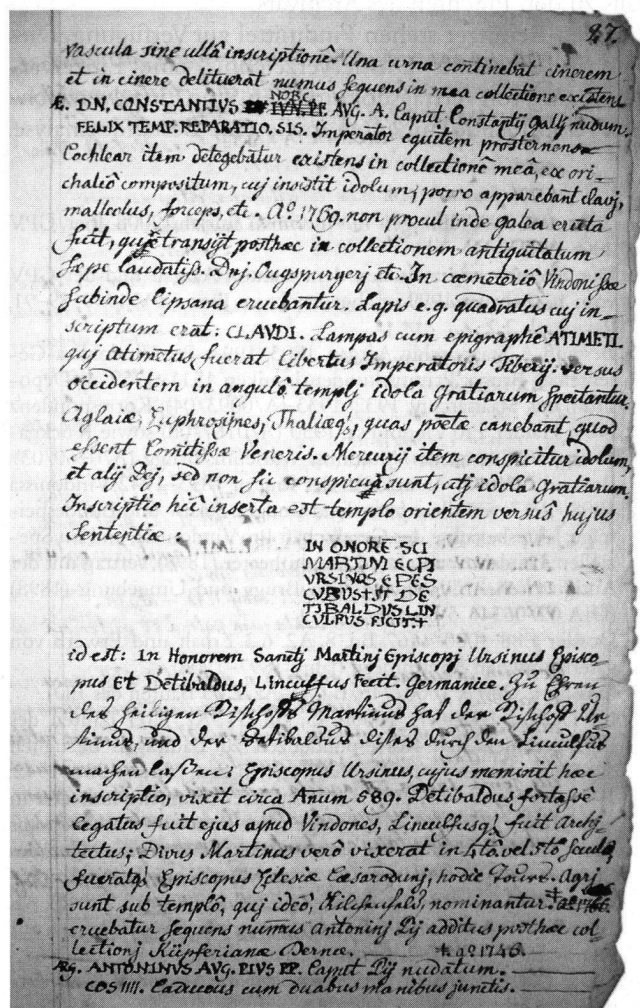 87
vascula sine ullâ inscriptionê. Una urna continebat cinerem
et in cinere delituerat numus sequens in mea collectione existens
Æ. D.N. CONSTANTIUS NOB. AUG. A. Caput Constantij Gallj nudum.
FELIX TEMP. REPARATIO. SIS. Imperator equitem prosternens
Cochlear item detegebatur existens in collectionê meâ, ex ori-
chalcô compositum, cuj insistit idolum; porro apparebant clavj,
malleolus, forceps, etc. Aº. 1769. non procul inde galea eruta
fuit, quæ transijt posthac in collectionem antiquitatum
sæpe laudatiss. Dnj. Ougspurgerj etc. In cæmeteriô Vindonissæ
subinde Lipsana eruebantur. Lapis e.g. quadratus cuj in-
scriptum erat: CLAVDI. Lampas cum epigraphê ATIMETI.
quj Atimetus, fuerat Libertus Imperatoris Tiberij. versus
occidentem in angulô templj idola Gratiarum spectantur.
Aglaiæ, Euphrosijnes, Thaliæq;, quas poetæ canebant, quod
essent Comitissæ Veneris. Mercurij item conspicitur idolum,
et alij Dej, sed non sic conspicua sunt, utj idola Gratiarum.
Inscriptio hic inserta est templo orientem versus hujus
Sententiæ:
IN ONORE SCI
MARTINI ECPI
VRSINOS EPES
CVBVS + VT DE
TIBALDVS LIN
CVLFVS FICIT +
id est: In Honorem Sanctj Martinj Episcopj Ursinus Episco-
pus Et Detibaldus, Linculfus Fecit. Germanice. Zu Ehren
des heiligen Bischofs Martinus hat der Bischof Ur-
sinus, und der Detibaldus dises durch den Linculfus
machen laßen: Episcopus Ursinus, cujus meminit hæc
inscriptio, vixit circa Anum 589. Detibaldus, fortassê
Legatus fuit ejus apud Vindones, Linculfusq; fuit Archi-
tectus; Divus Martinus verô vixerat in 4tô vel 5tô seculo,
fueratq; Episcopus Eglesiæ Cæsarodunj, hodie Tours. Agri
sunt sub templo, quj ideô, Kilchenfeld, nominantur. ‡
eruebatur sequens numus Antoninj Pij additus posthac col-
lectionj Küpferianæ Bernæ. ‡ aº 1746.
Æg. ANTONINVS AVG. PIVS PP. Caput Pij nudatum.
COS IIII. Caduceus cum duabus manibus junctis.